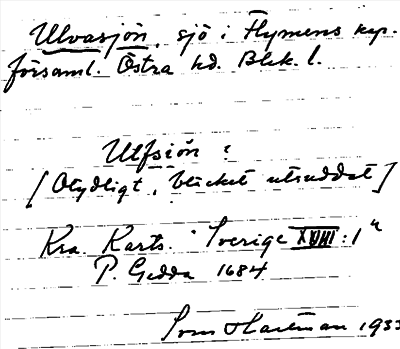 Ulvasjön, sjö i Flymens kap.
församl. Östra hd. Blek. l.
Ulfsiön:
[Otydligt, blecket utsuddat]
Kra. Karts. Sverige XVIII:1
P. Gedda 1684